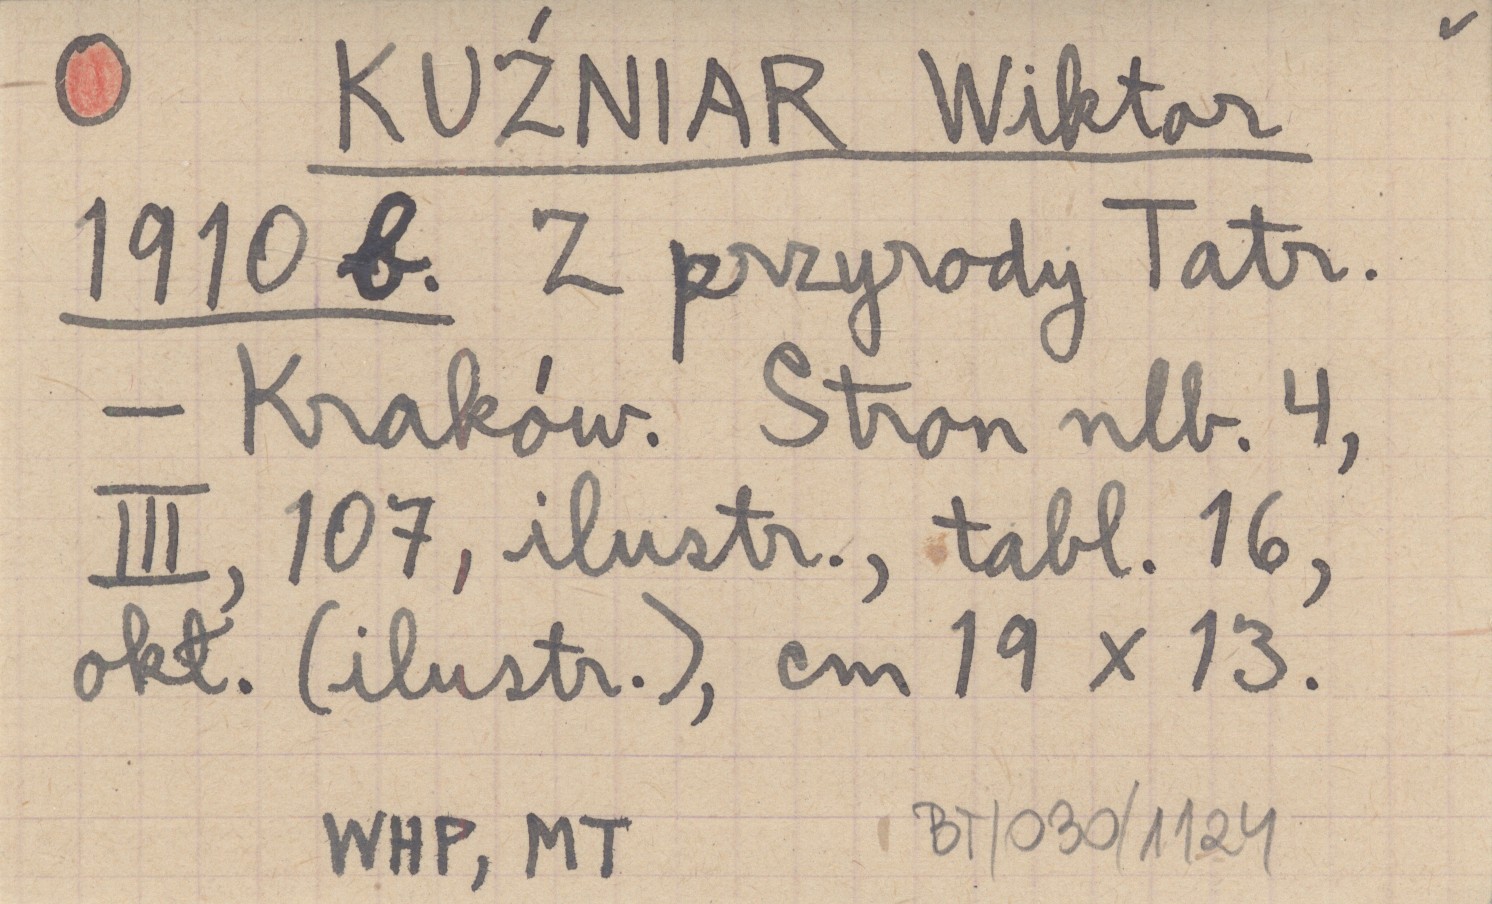 KUŹNIAR Wiktor
1910 b. Z przyrody Tatr.
— Kraków. Stron nlb. 4,
III, 107, ilustr., tabl. 16,
okł. (ilustr.), cm 19 x 13.
WHP, MT BT/030/1124